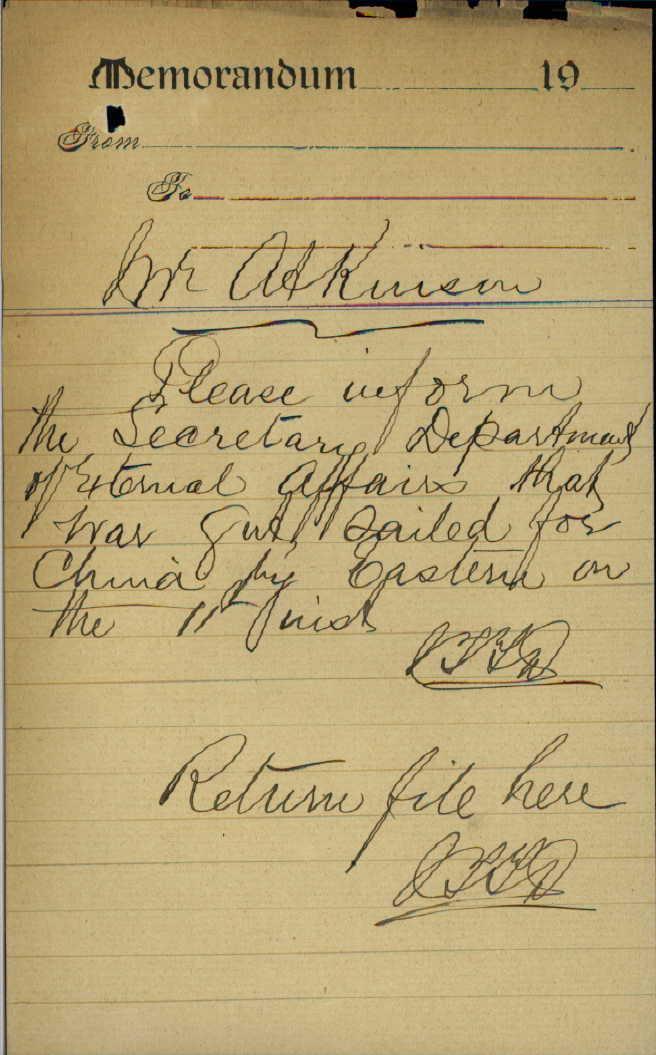 Memorandum 19
From
To
Mr Atkinson
Please inform
the Secretary Department
of External Affairs that
War Gut sailed for
China by Eastern on
the 11th inst
Return file here